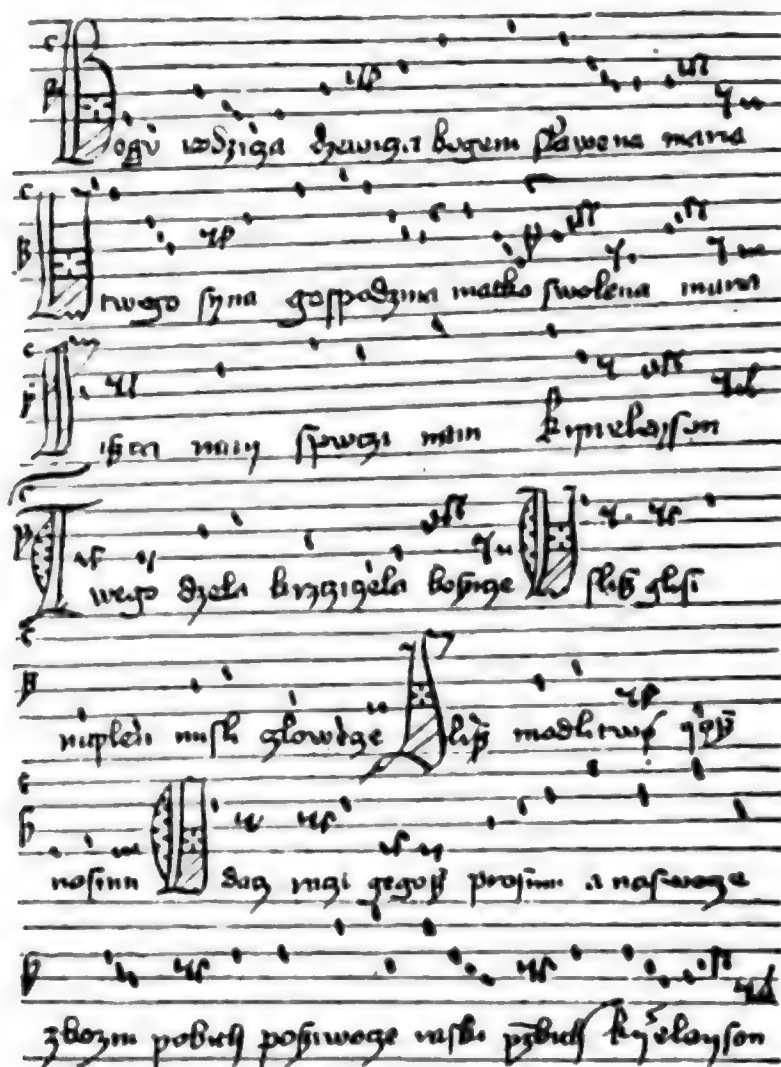 Bogu rodzicza dzewicza bogem slawena maria
twego syna gospodzina matko swolena maria
siszczi nam spwczi nam kyrieleyson
twego dzela krzcziczela boszicze uslisz glosi
napelni misli czlowecze slisz modlitwø
nosimi dacz raczi gegosz prosimi a naswecze
zbozni pobith posziwocze raski przebith kyrieleyson